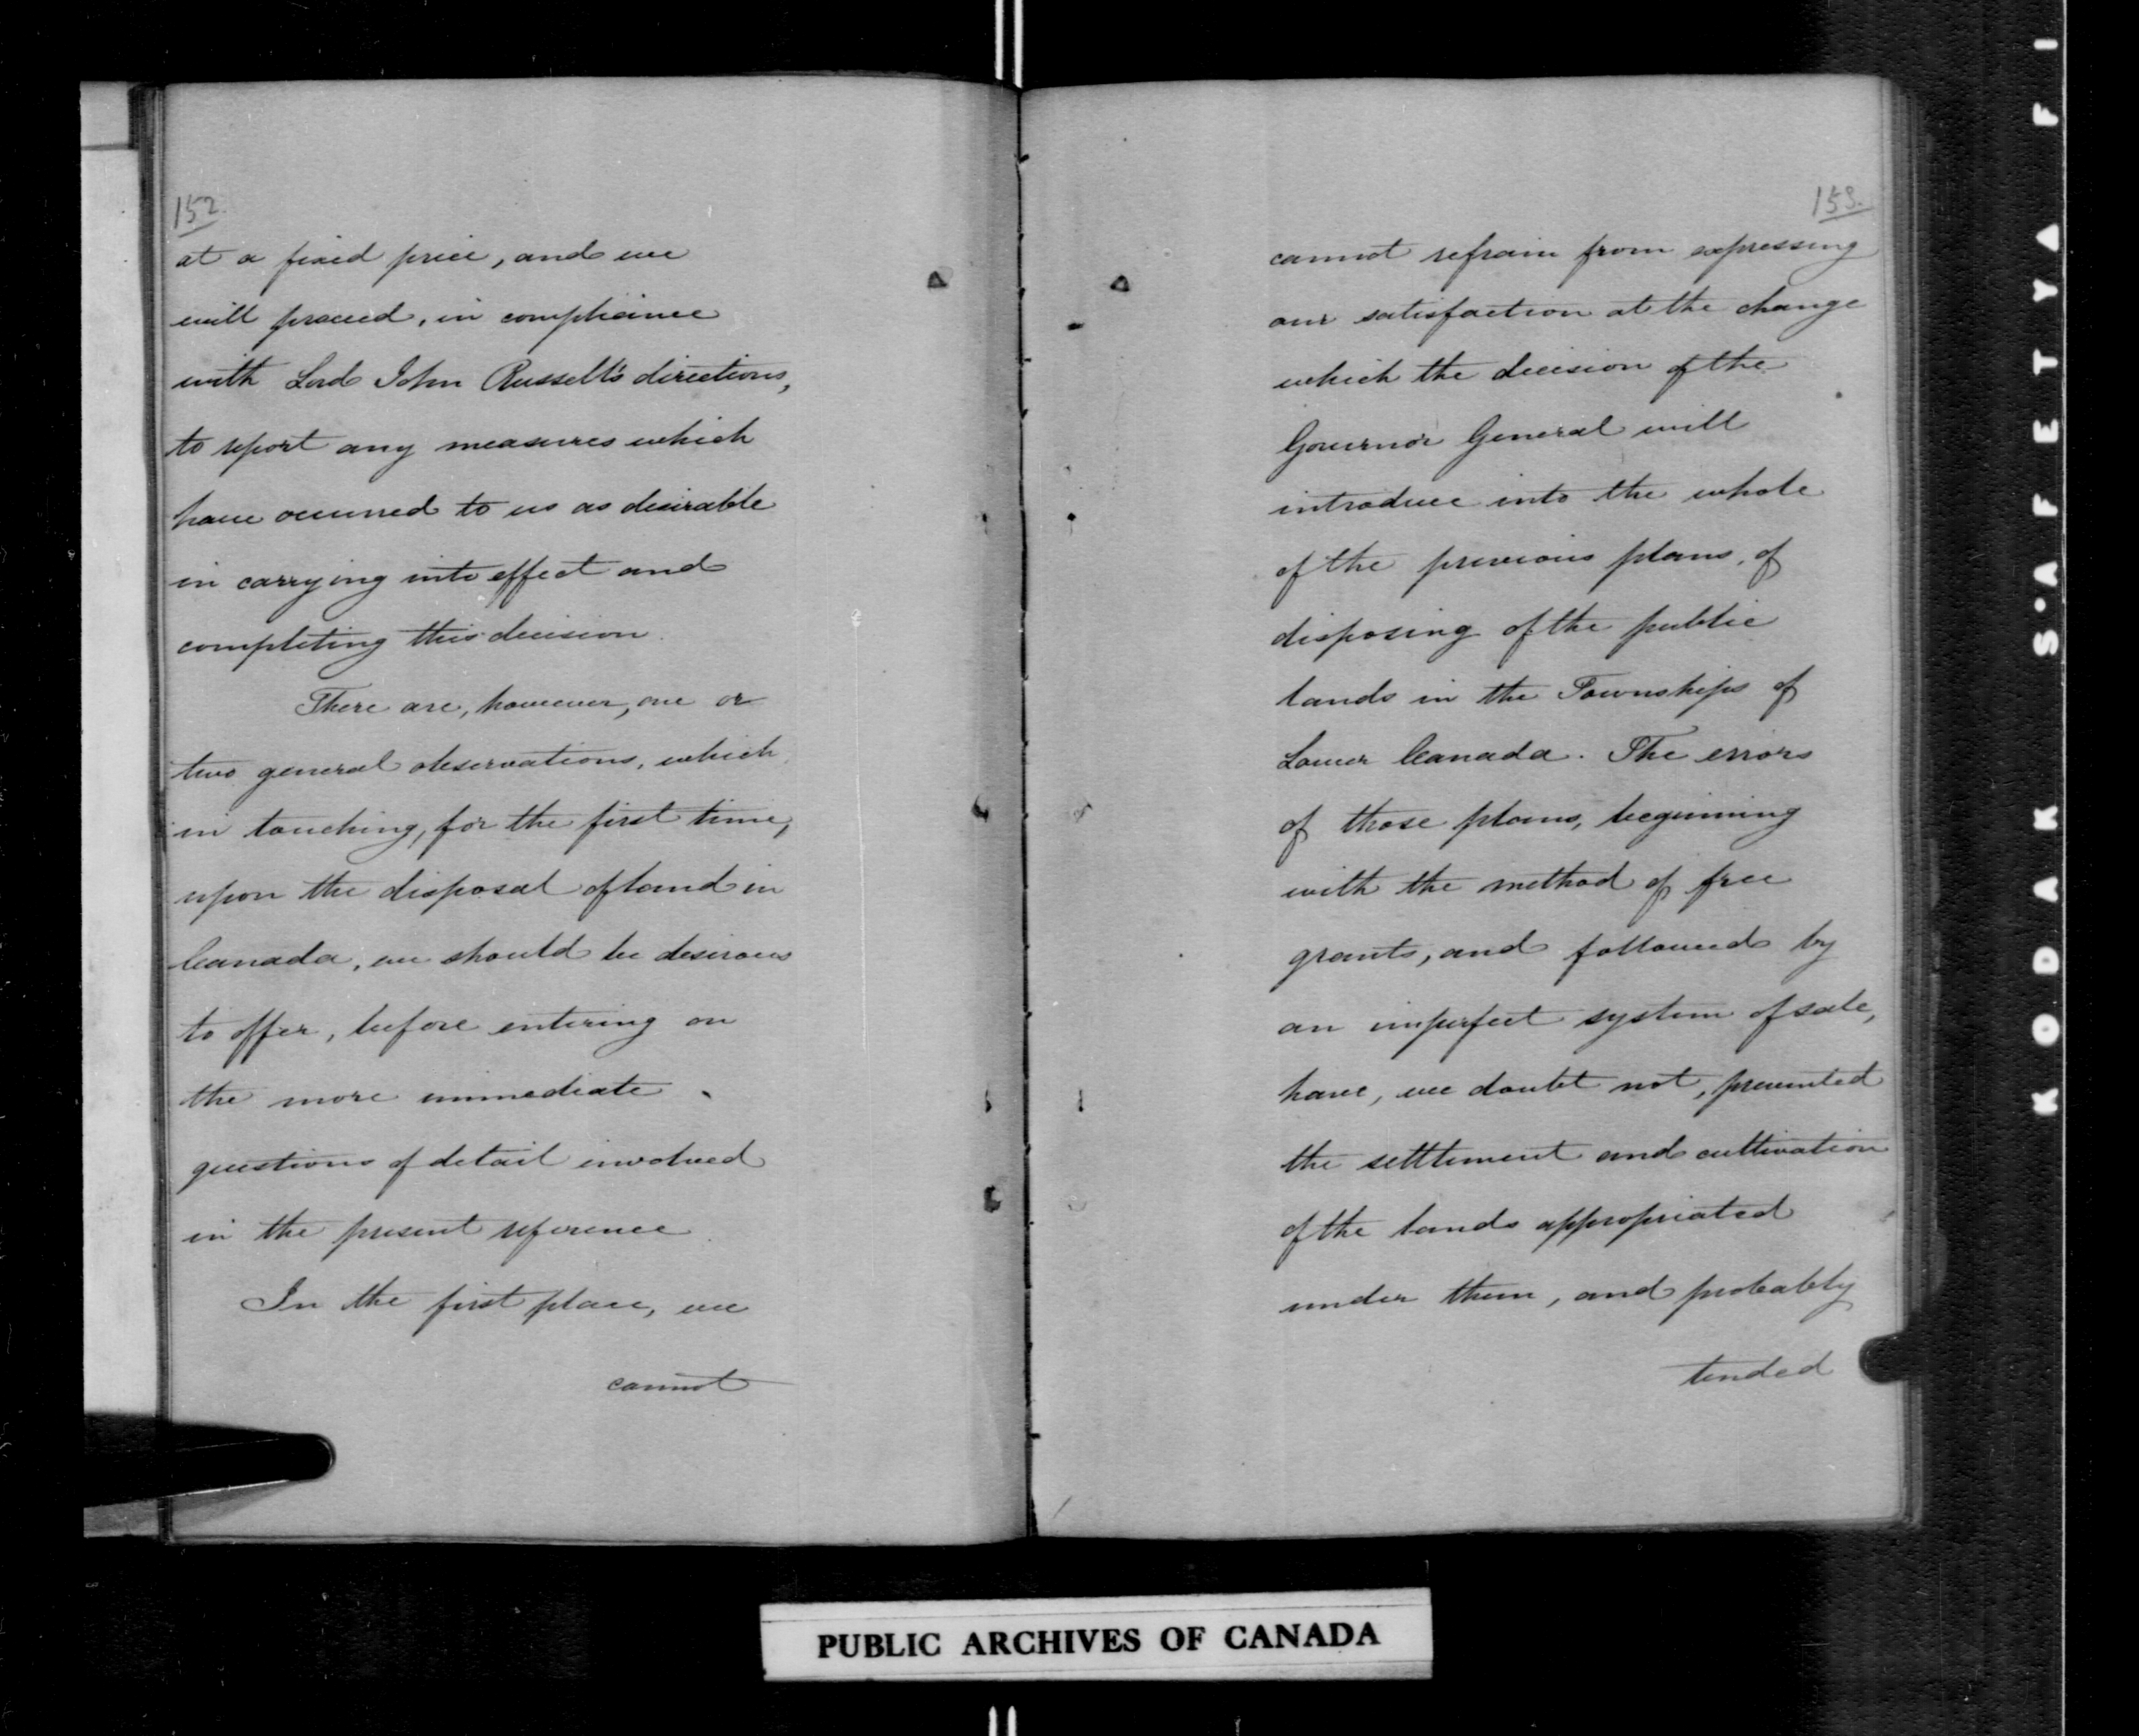 152.
at a fixed price, and we
will proceed, in compliance
with Lord John Russell's directions,
to report any measures which
have occurred to us as desirable
in carrying into effect and
completing this decision.
There are, however, one or
two general observations, which,
in touching, for the first time,
upon the disposal of land in
Canada, we should be desirous
to offer, before entering on
the more immediate
questions of detail involved
in the present reference.
In the first place, we
cannot
153.
cannot refrain from expressing
our satisfaction at the change
which the decision of the
Governor General will
introduce into the whole
of the previous plans, of
disposing of the public
lands in the Townships of
Lower Canada. The errors
of those plans, beginning
with the method of free
grants, and followed by
an imperfect system of sale,
have, we doubt not, prevented
the settlement and cultivation
of the lands appropriated
under them, and probably
tended
PUBLIC ARCHIVES OF CANADA
KODAK S·A F E T Y A F I